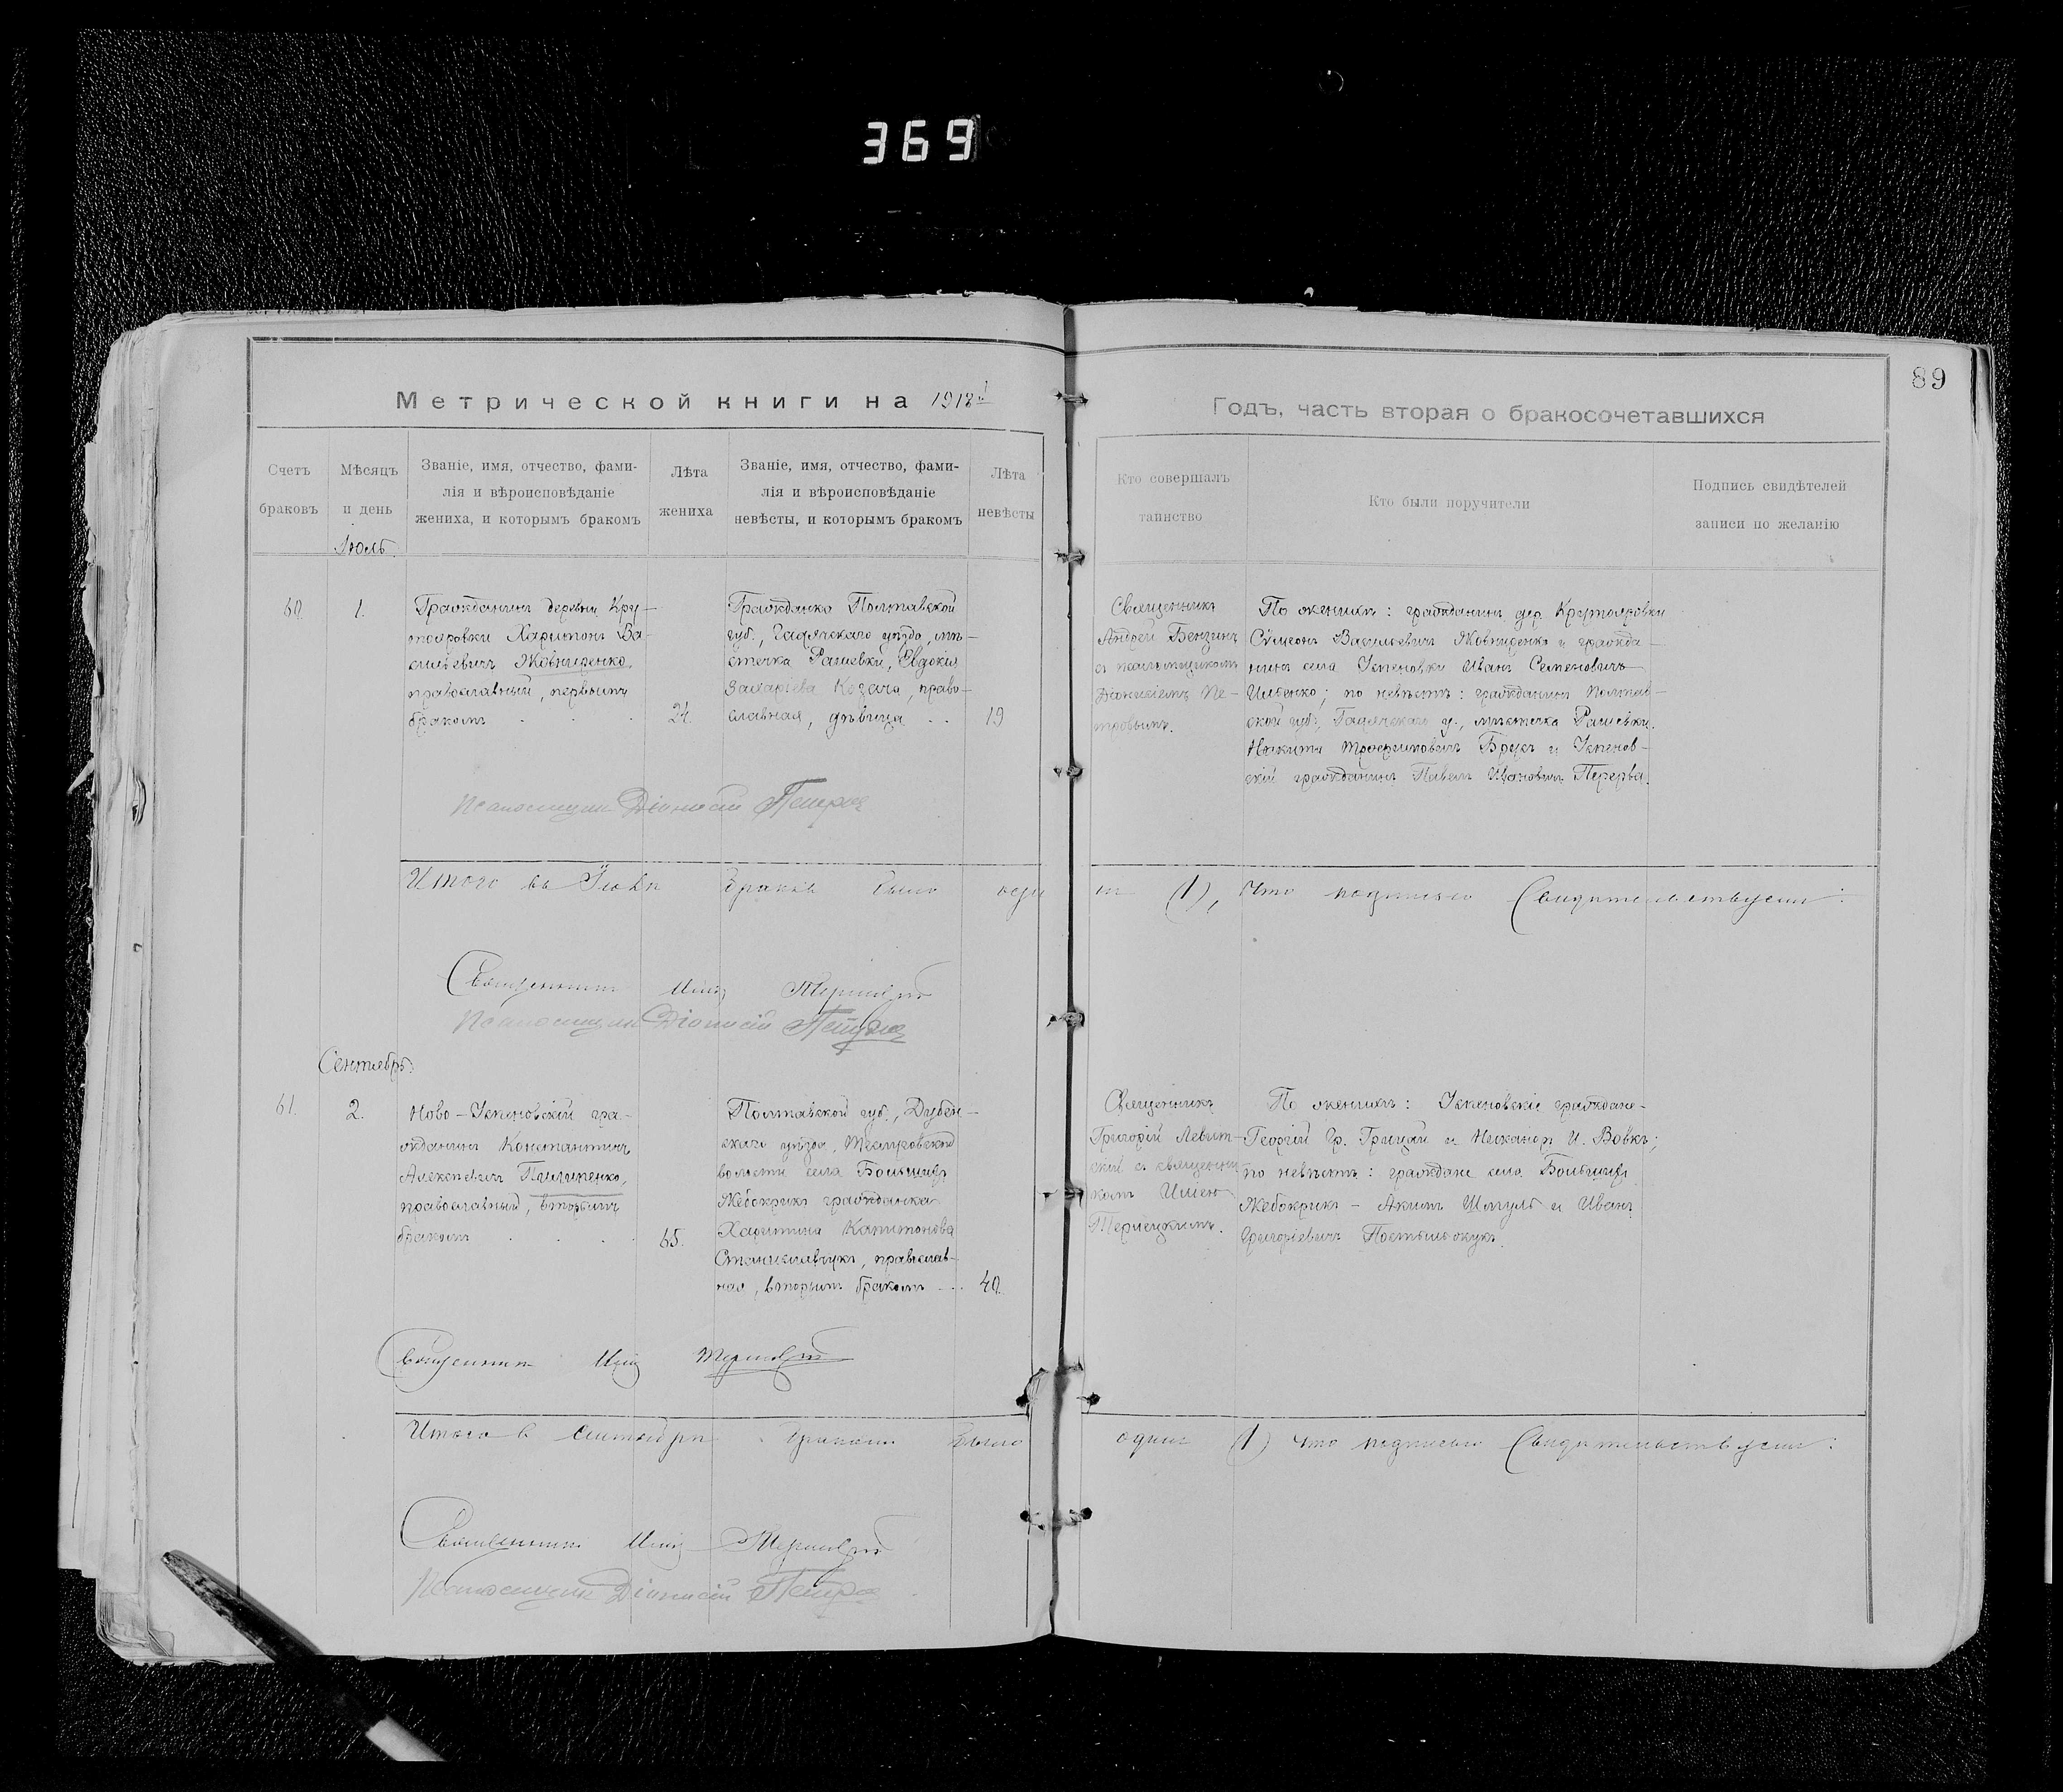 369
89
Метрической книги на 1918й
Годъ, часть вторая о бракосочетавшихся
Счетъ
браковъ
Мѣсяцъ
и день
Званіе, имя, отчество, фами-
лія и вѣроисповѣданіе
жениха, и которымъ бракомъ
Лѣта
жениха
Званіе, имя, отчество, фами-
лія и вѣроисповѣданіе
невѣсты, и которымъ бракомъ
Лѣта
невѣсты
Кто совершалъ
таинство
Кто были поручители
Подпись свидѣтелей
записи по желанію
Іюль.
60.
1.
Гражданинъ деревни Кру-
тояровки Харитонъ Ва-
сильевичъ Жовниренко,
православный, первымъ
бракомъ
24.
Гражданка Полтавской
губ., Гадячскаго уѣзда, мѣ-
стечка Рашевки, Евдокія
Захаріева Козача, право-
славная, дѣвица
19
Священникъ
Андрей Бензинъ
съ псаломщикомъ
Діонисіемъ Пе-
тровымъ.
По женихѣ: гражданинъ дер. Крутояровки
Сѵмеонъ Васильевичъ Жовниренко и гражда-
нинъ села Успеновки Иванъ Семеновичъ
Ильенко; по невѣстѣ: гражданинъ Полтав-
ской губ., Гадячскаго у., мѣстечка Рашевки
Никита Трофимовичъ Брусъ и Успенов-
скій гражданинъ Павелъ Ивановичъ Перерва.
Псаломщикъ Діонисій Петровъ
Итого въ Іюлѣ бракъ было оди
нъ (1), что подписью Свидѣтельствуемъ:
Священникъ Илія Терлецкій
Псаломщикъ Діонисій Петровъ
Сентябрь:
61.
2.
Ново-Успеновскій гра-
жданинъ Константинъ
Алексѣевичъ Пилипенко,
православный, вторымъ
бракомъ
65.
Полтавской губ., Дубен-
скаго уѣзда,
волости села Большихъ
Жебокрикъ гражданка
Харитина Капитонова
Станиславчукъ, православ-
ная, вторымъ бракомъ
40.
Священникъ
Григорій Левит-
скій съ священни-
комъ Иліею
Терлецкимъ.
По женихѣ: Успеновскіе граждане-
Георгій Гр. Грицай и Никаноръ И. Вовкъ;
по невѣстѣ: граждане села Большихъ
Жебокрикъ - Акимъ Шмуль и Иванъ
Григоріевичъ
Священникъ Илія Терлецкій
Итого в Сентябрѣ браковъ было
одинъ (1) что подписью Свидѣтельствуемъ:
Священникъ Илія Терлецкій
Псаломщикъ Діонисій Петровъ